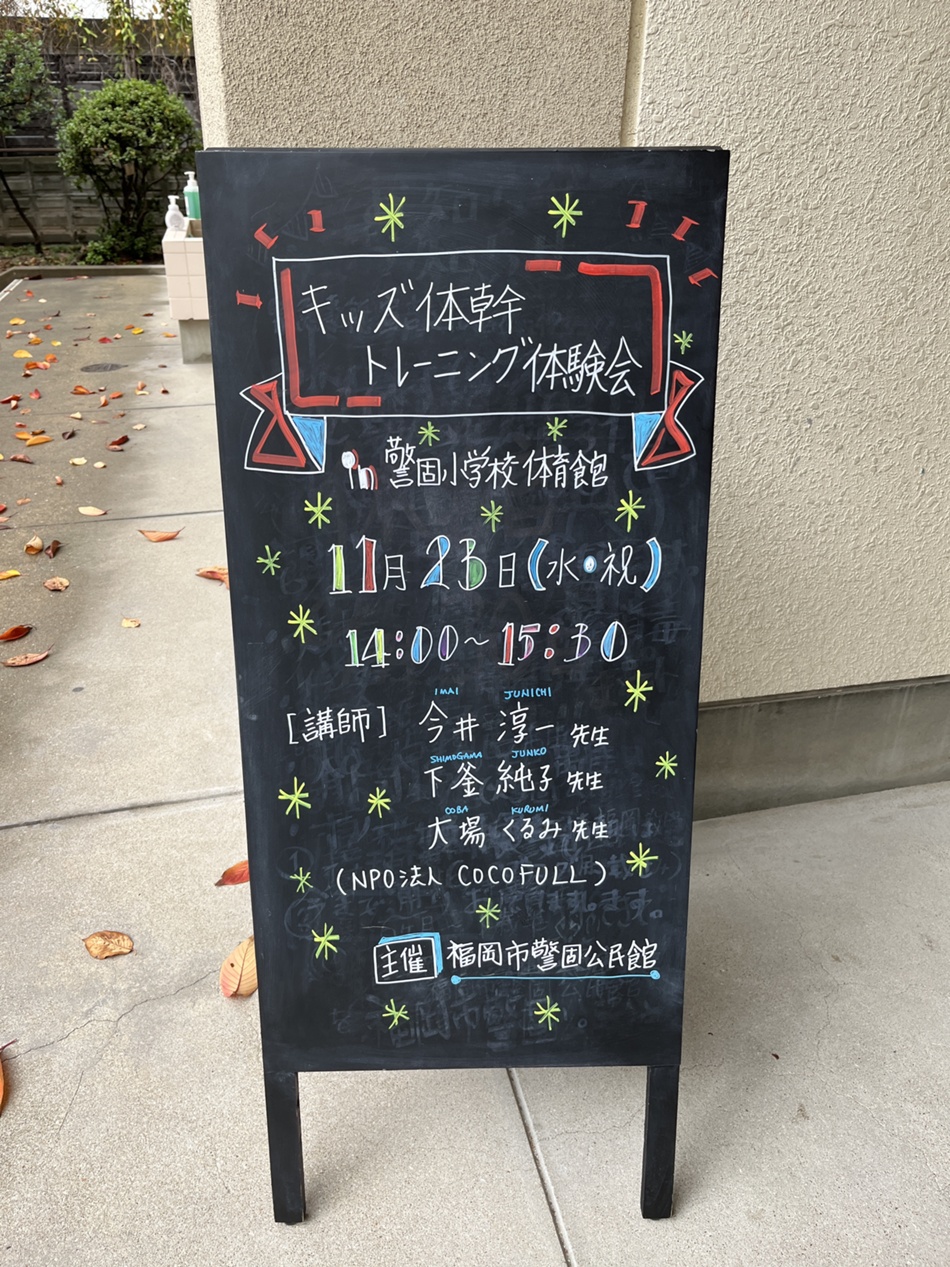 キッズ体幹
トレーニング体験会
in 警固小学校 体育館
11月23日(水・祝)
14:00～15:30
IMAI JUNICHI
[講師] 今井 淳一 先生
SHIMOGAMA JUNKO
下釜 純子 先生
OOBA KURUMI
大場 くるみ 先生
(NPO法人 COCOFULL)
主催 福岡市警固公民館